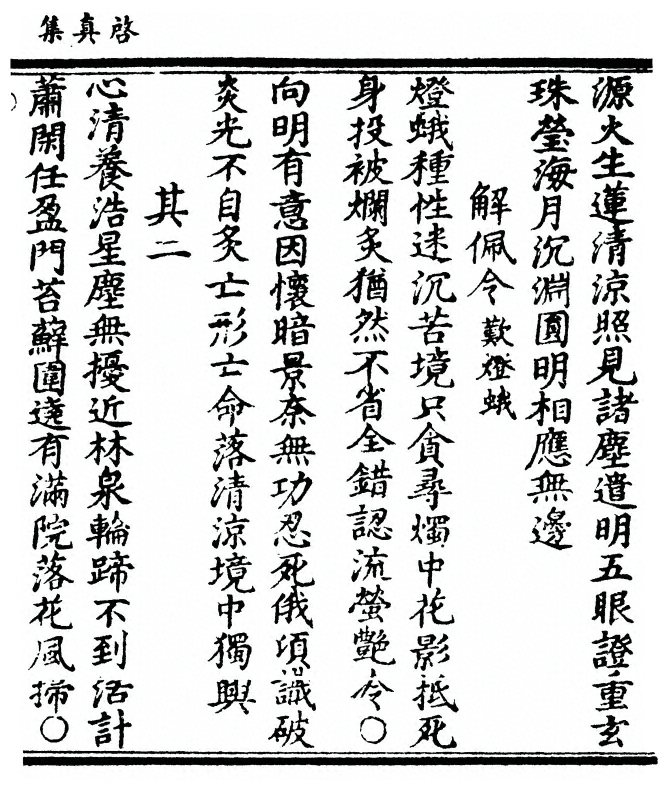 啓真集
源火生蓮清涼照見諸塵遣明五眼證重玄
珠瑩海月沉淵圓明相應無邊
解佩令歎燈蛾
燈蛾種性迷沉苦境只貪尋燭中花影抵死
身投被爛炙猶然不省全錯認流螢艷冷〇
向明有意因懷暗景柰無功忍死俄頃識破
炎光不自炙亡形亡命落清涼境中獨興
其二
心清養浩星塵無擾近林泉輪蹄不到活計
蕭閑任盈門苔蘚圍遶有滿院落花風掃〇